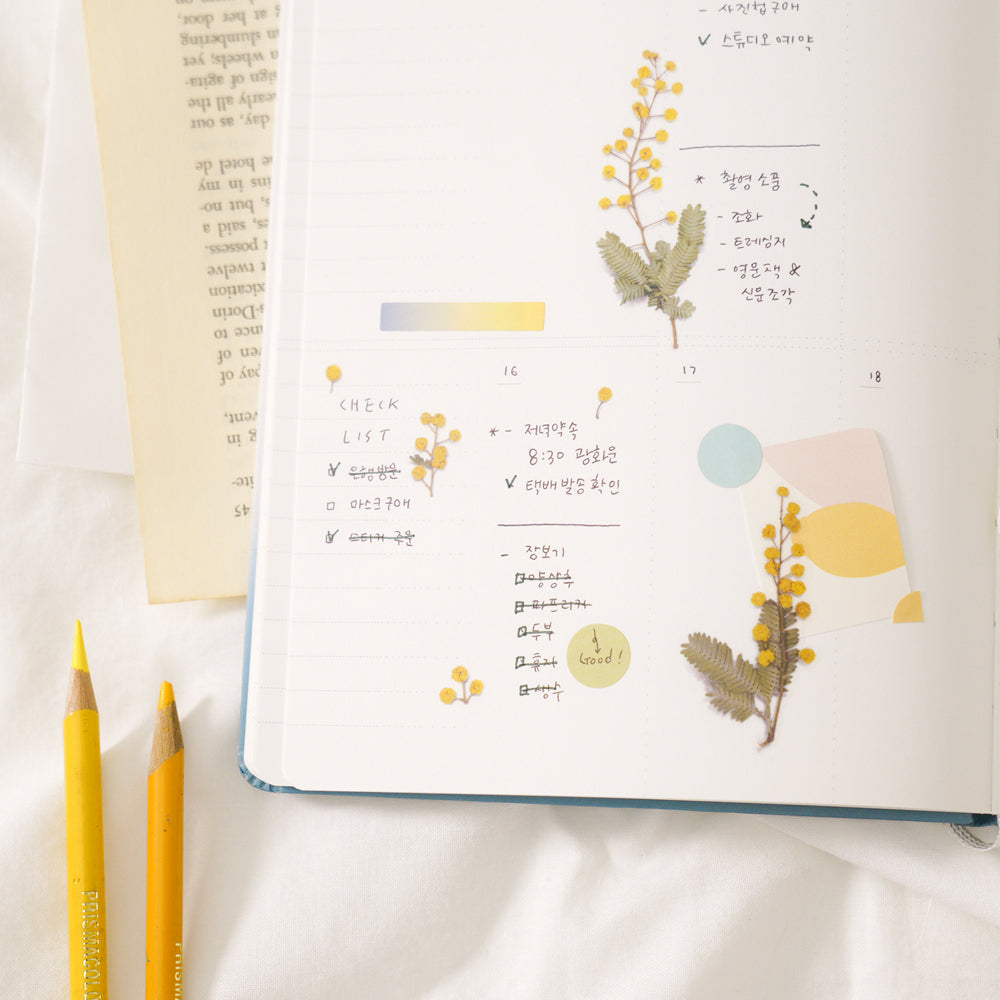 - 사진첩 구매
✓ 스튜디오 예약
* 촬영 소품
- 조화
- 트레싱지
- 영문책 &
신문조각
16
17
18
CHECK
LIST
은행방문
마스크 구매
스티커 주문
* - 저녁약속
8:30 광화문
✓ 택배 발송 확인
- 장보기
양상추
파프리카
두부
휴지
생수
Good!
at her door,
slumbering
wheels; yet
sign of agita-
early all the
day, as our
hotel de
ins in my
but no-
said a
possess.
twelve
of
pay of
in
45
PRISMACOLO
PRISM